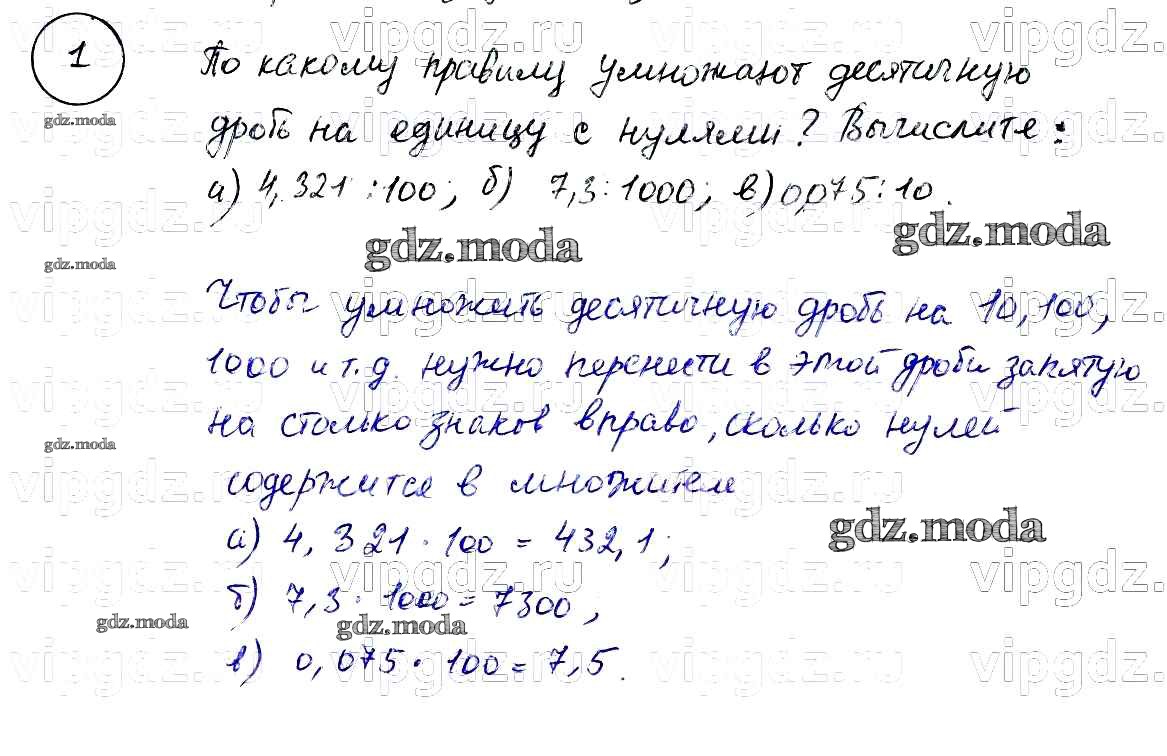 1
По какому правилу умножают десятичную
дробь на единицу с нулями? Вычислите:
а) 4,321 : 100; б) 7,3 : 1000; в) 0,075 : 10.
gdz.moda
Чтобы умножить десятичную дробь на 10, 100,
1000 и т.д. нужно перенести в этой дроби запятую
на столько знаков вправо, сколько нулей
содержится в множителе
а) 4,321 · 100 = 432,1;
б) 7,3 · 1000 = 7300;
в) 0,075 · 100 = 7,5.
gdz.moda
vipgdz.ru